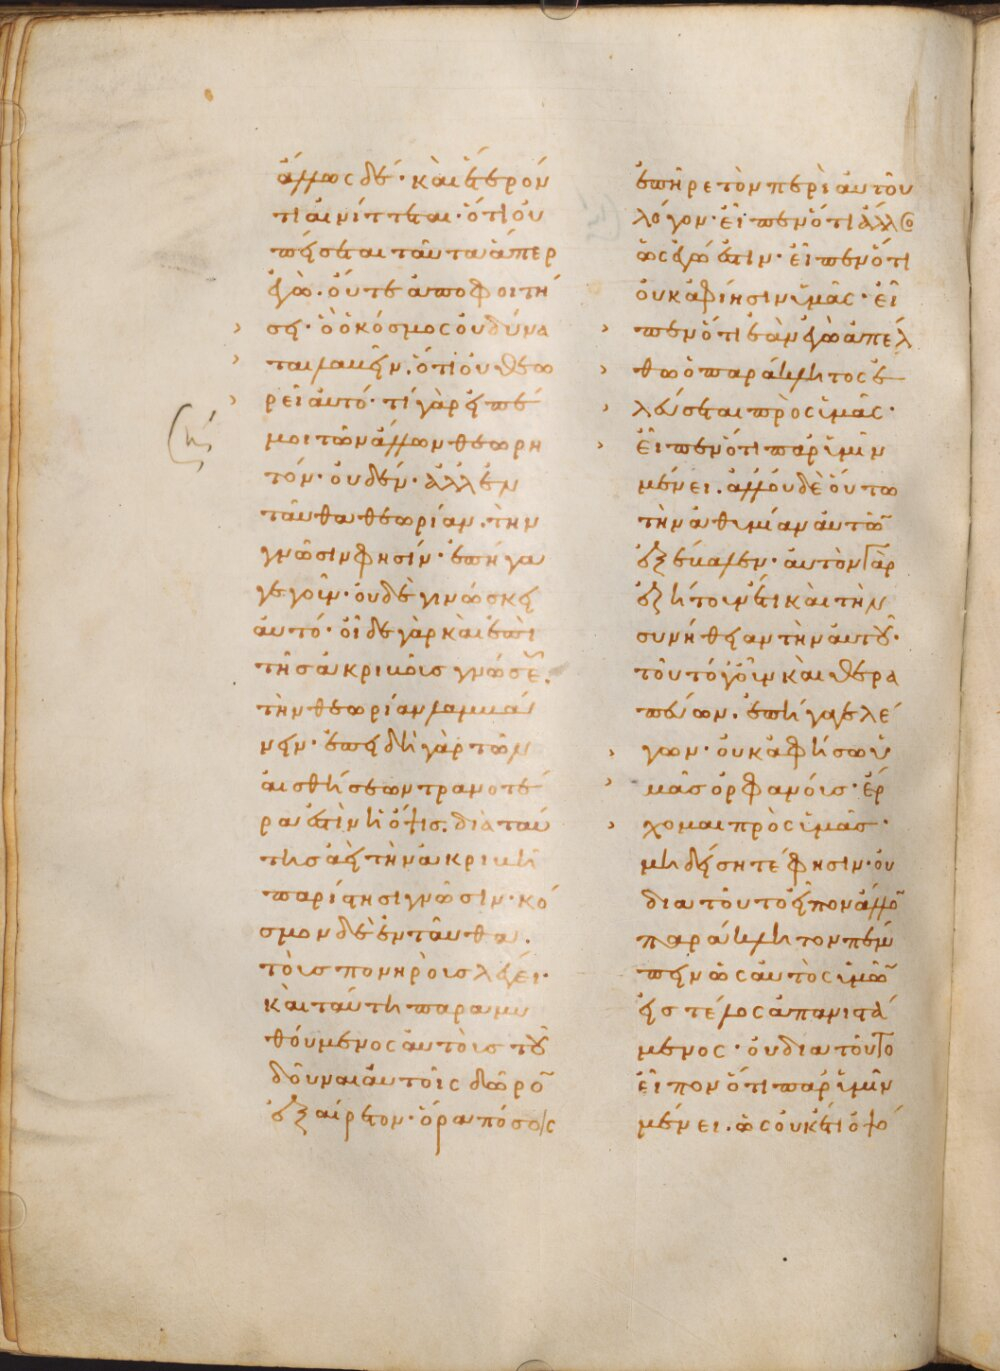 ἄλλως δέ· καὶ ἕτερόν
τι αἰνίττεται· ὅτι οὐ
πείσεται ταῦτα ἅπερ
ἐγώ. οὔτε ἀποφοιτή
σει· ὃ ὁ κόσμος οὐ δύνα
ται λαβεῖν. ὅτι οὐ θεω
ρεῖ αὐτό· τί γὰρ εἰπέ
μοι τῶν ἄλλων θεωρη
τόν· οὐδέν· ἀλλ' ἐν
ταῦθα θεωρίαν. τὴν
γνῶσιν φησίν· ἐπήγα
γε γοῦν· οὐδὲ γινώσκει
αὐτό· οἶδε γὰρ καὶ ἐπὶ
τῆς ἀκριβοῦς γνώσε͂.
τὴν θεωρίαν λαμβά
νειν· ἐπειδὴ γὰρ τῶν
αἰσθήσεων τρανοτέ
ρα ἐστὶν ἡ ὄψις. διὰ ταύ
της ἀεὶ τὴν ἀκριβῆ
παρίστησι γνῶσιν· κό
σμον δὲ ἐνταῦθα.
τοὺς πονηροὺς λέγει·
καὶ ταύτη παραμυ
θούμενος αὐτοὺς τοῦ
δοῦναι αὐτοῖς δῶρο̅
ἐξαίρετον· ὅρα πόσοις
ἐπῆρε τὸν περὶ αὐτοῦ
λόγον· εἶπεν ὅτι ἄλλο
ὡς ἐγώ ἐστιν· εἶπεν ὅτι
οὐκ ἀφίησιν ὑμᾶς· εἶ
πεν ὅτι ἐὰν ἐγὼ ἀπέλ
θω ὁ παράκλητος ἐ
λεύσεται πρὸς ὑμᾶς·
εἶπεν ὅτι παρ' ὑμῖν
μένει. ἀλλ' οὐδὲ οὕτω
τὴν ἀθυμίαν αὐτῶ̅
ἐξέβαλεν· αὐτὸν γὰρ
ἐζήτουν ἔτι καὶ τὴν
συνήθειαν τὴν αὐτοῦ·
τοῦτο γοῦν καὶ θερα
πεύων. ἐπήγαγε λέ
γων· οὐκ ἀφήσω ὑ
μᾶς ὀρφανούς· ἔρ
χομαι πρὸς ὑμᾶς·
μὴ δείσητέ φησιν· οὐ
διὰ τοῦτο εἶπον ἄλλο̅
παράκλητον πέμ
πειν ὡς αὐτὸς ὑμῶ̅
εἰς τέλος ἀπανιστά
μενος· οὐ διὰ τοῦτο
εἶπον ὅτι παρ' ὑμῖν
μένει. ὡς οὐκέτι ὀψό